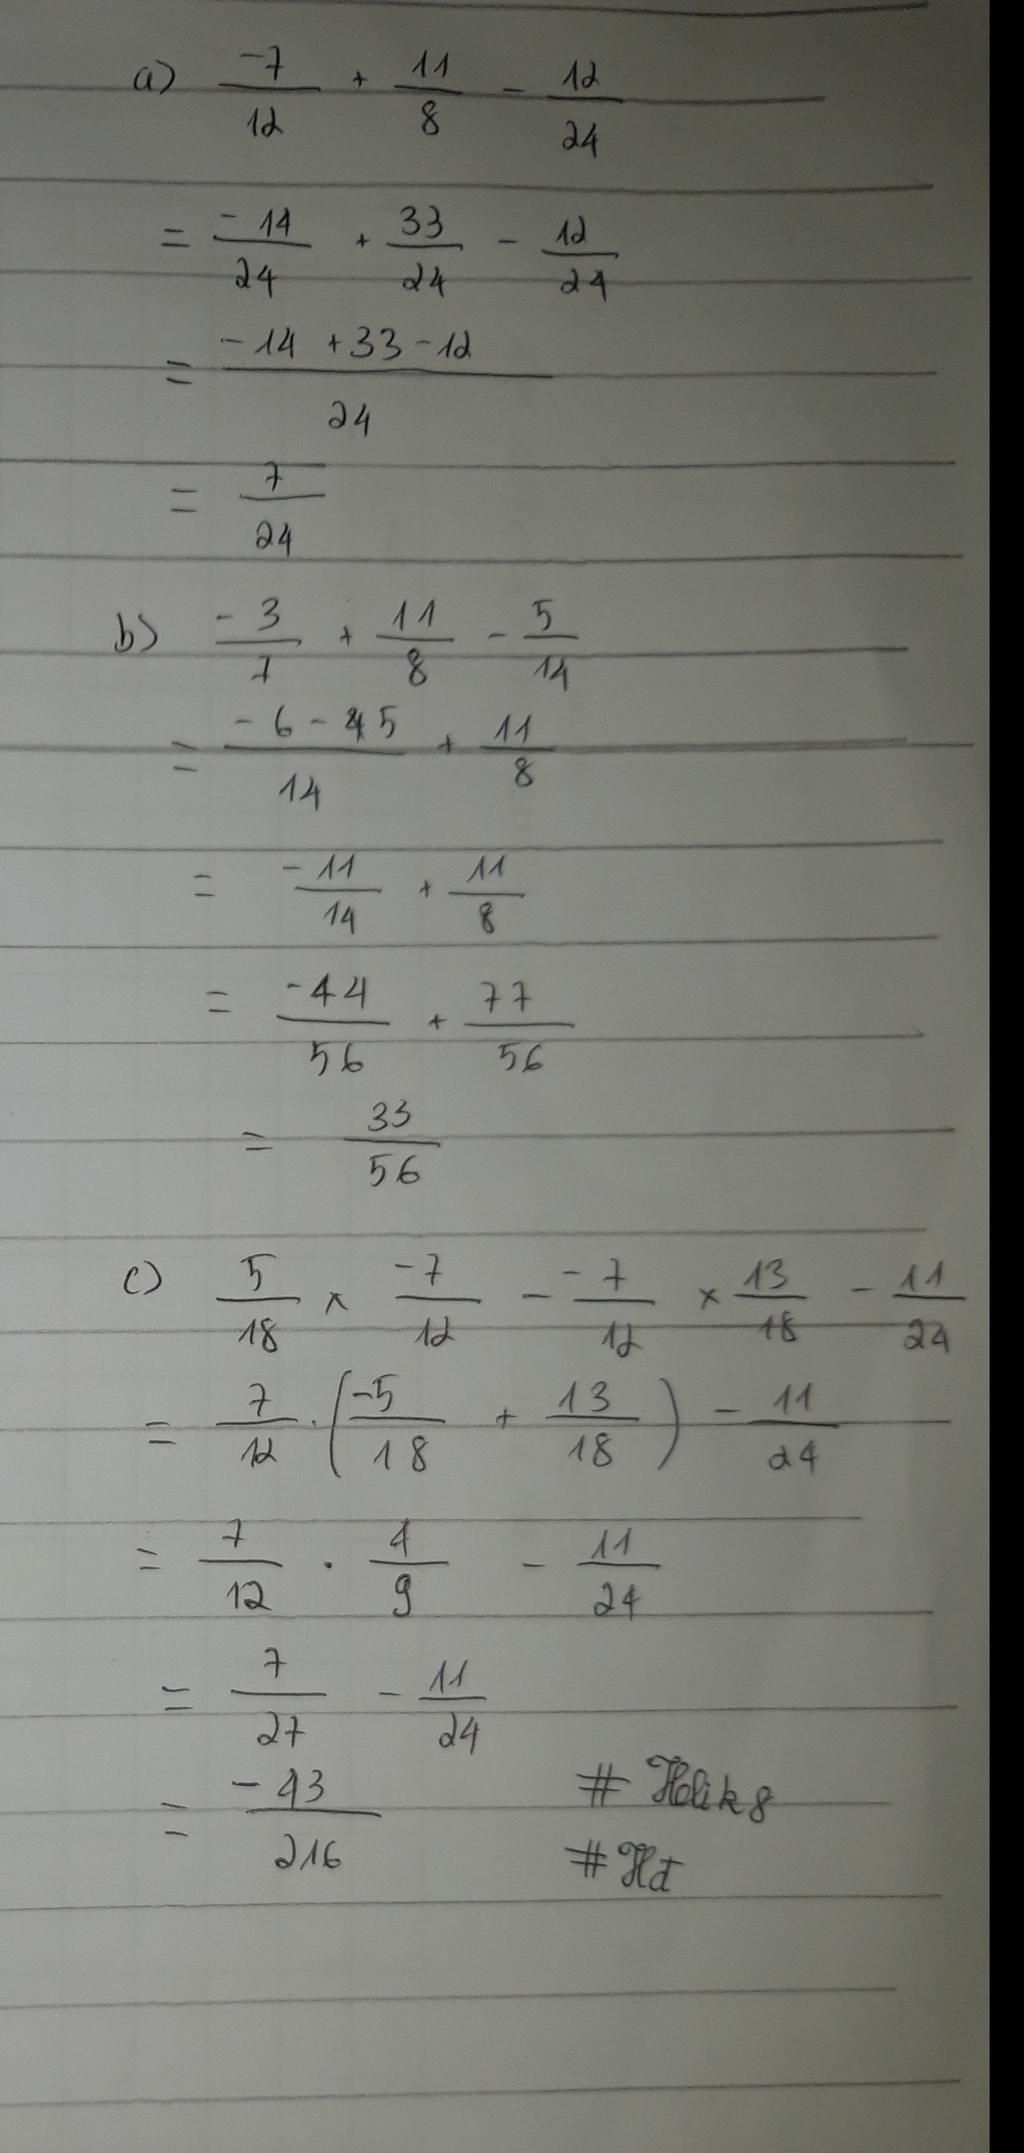 a) -7/12 + 11/8 - 12/24
= -14/24 + 33/24 - 12/24
= (-14 + 33 - 12)/24
= 7/24
b) -3/7 + 11/8 - 5/14
= (-6 - 5)/14 + 11/8
= -11/14 + 11/8
= -44/56 + 77/56
= 33/56
c) 5/18 × -7/12 - -7/12 × 13/18 - 11/24
= 7/12 . (-5/18 + 13/18) - 11/24
= 7/12 . 4/9 - 11/24
= 7/27 - 11/24
= -43/216
# Hđ